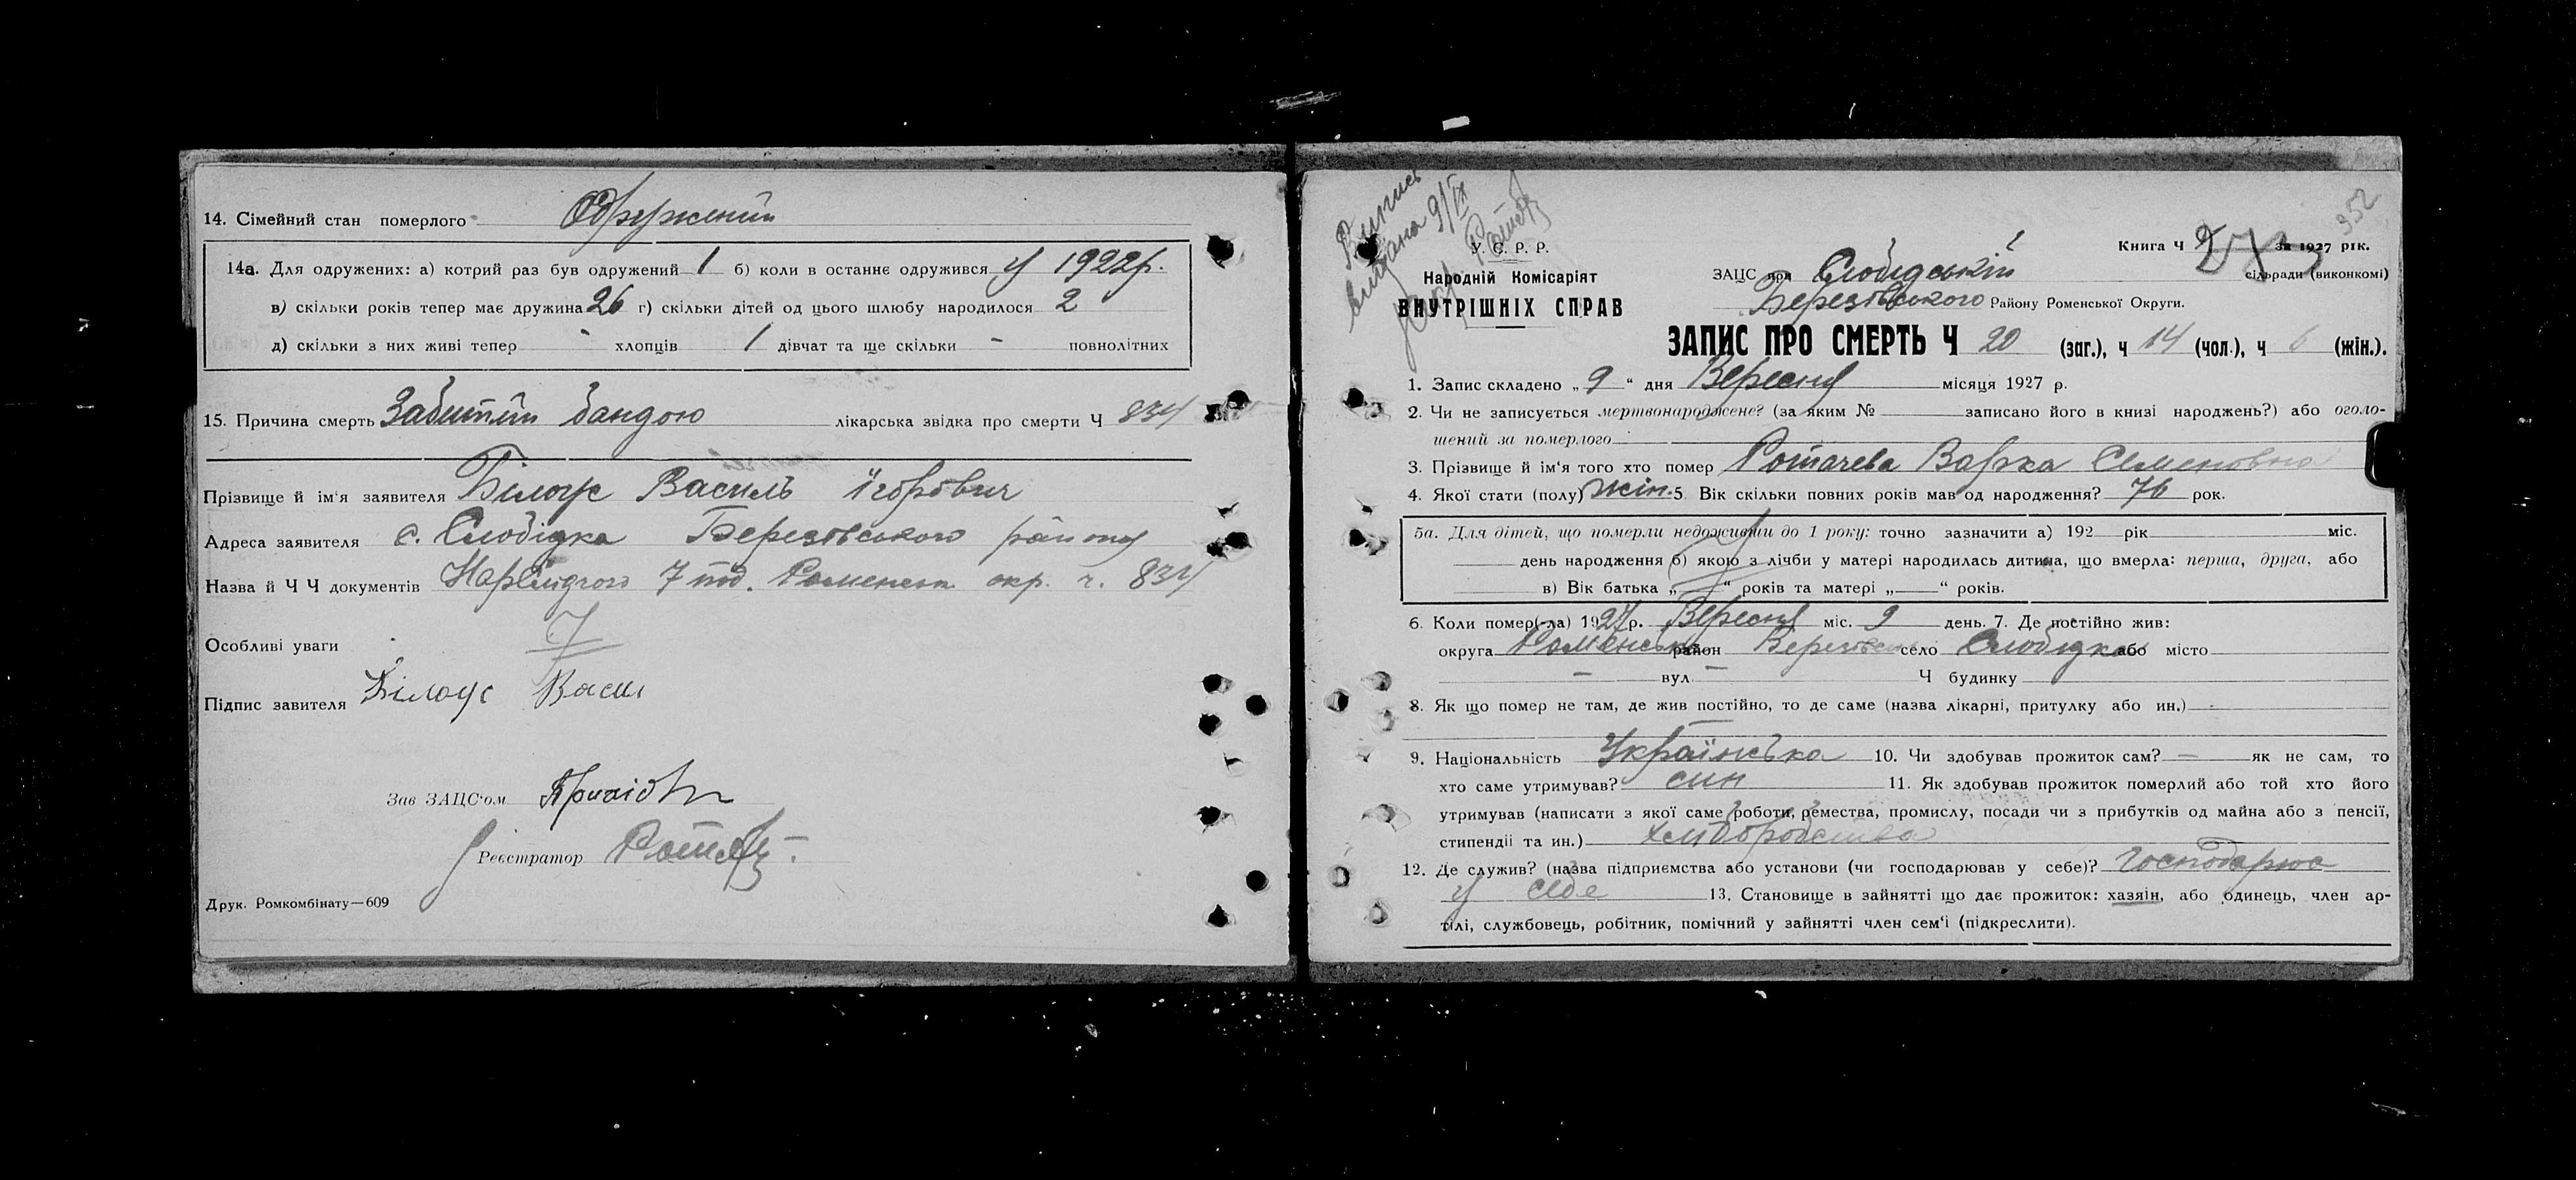 14. Сімейний стан померлого Одружений
14а. Для одружених: а) котрий раз був одружений 1 б) коли в останнє одружився у 1922 р.
в) скільки років тепер має дружина 26 г) скільки дітей од цього шлюбу народилося 2
д) скільки з них живі тепер - хлопців 1 дівчат та ще скільки - повнолітних
15. Причина смерть Забитий бандою лікарська звідка про смерти Ч 834
Прізвище й ім'я заявителя Білоус Василь
Адреса заявителя с. Слобідка Березівського району
Назва й Ч Ч документів 7 Роменськ окр. ч. 834
Особливі уваги
Підпис завителя Білоус Васи
Зав ЗАЦС'ом
Реєстратор
Друк. Ромкомбінату—609
352
Випись
видана 9/IX
У. С. Р. Р.
Народній Комісаріят
ВНУТРІШНІХ СПРАВ
Книга Ч 2 за 1927 рік.
ЗАЦС при Слобідській сільради (виконкомі)
Березівського Району Роменської Округи.
ЗАПИС ПРО СМЕРТЬ Ч 20 (заг.), ч 14 (чол.), ч 6 (жін.).
1. Запис складено „9“ дня Вересня місяця 1927 р.
2. Чи не записується мертвонароджене? (за яким № записано його в книзі народжень?) або оголо-
шений за померлого
3. Прізвище й ім'я того хто помер Ротачева Варка Семеновна
4. Якої стати (полу) жін. 5 Вік скільки повних років мав од народження? 76 рок.
5а. Для дітей, що померли недоживши до 1 року: точно зазначити а) 192 рік міс.
день народження б) якою з лічби у матері народилась дитина, що вмерла: перша, друга, або
в) Вік батька „ “ років та матері „ “ років.
6. Коли помер(-ла) 1927 р. Вересня міс. 9 день. 7. Де постійно жив:
округа Роменськ район Березівськ село Слобідка або місто
вул. Ч будинку
8. Як що помер не там, де жив постійно, то де саме (назва лікарні, притулку або ин.)
9. Національність Українська 10. Чи здобував прожиток сам? — як не сам, то
хто саме утримував? син 11. Як здобував прожиток померлий або той хто його
утримував (написати з якої саме роботи, ремества, промислу, посади чи з прибутків од майна або з пенсії,
стипендії та ин.) хліборобства
12. Де служив? (назва підприємства або установи (чи господарював у себе)? Господарює
у себе 13. Становище в зайнятті що дає прожиток: хазяїн, або одинець, член ар-
тілі, службовець, робітник, помічний у зайнятті член сем'ї (підкреслити).